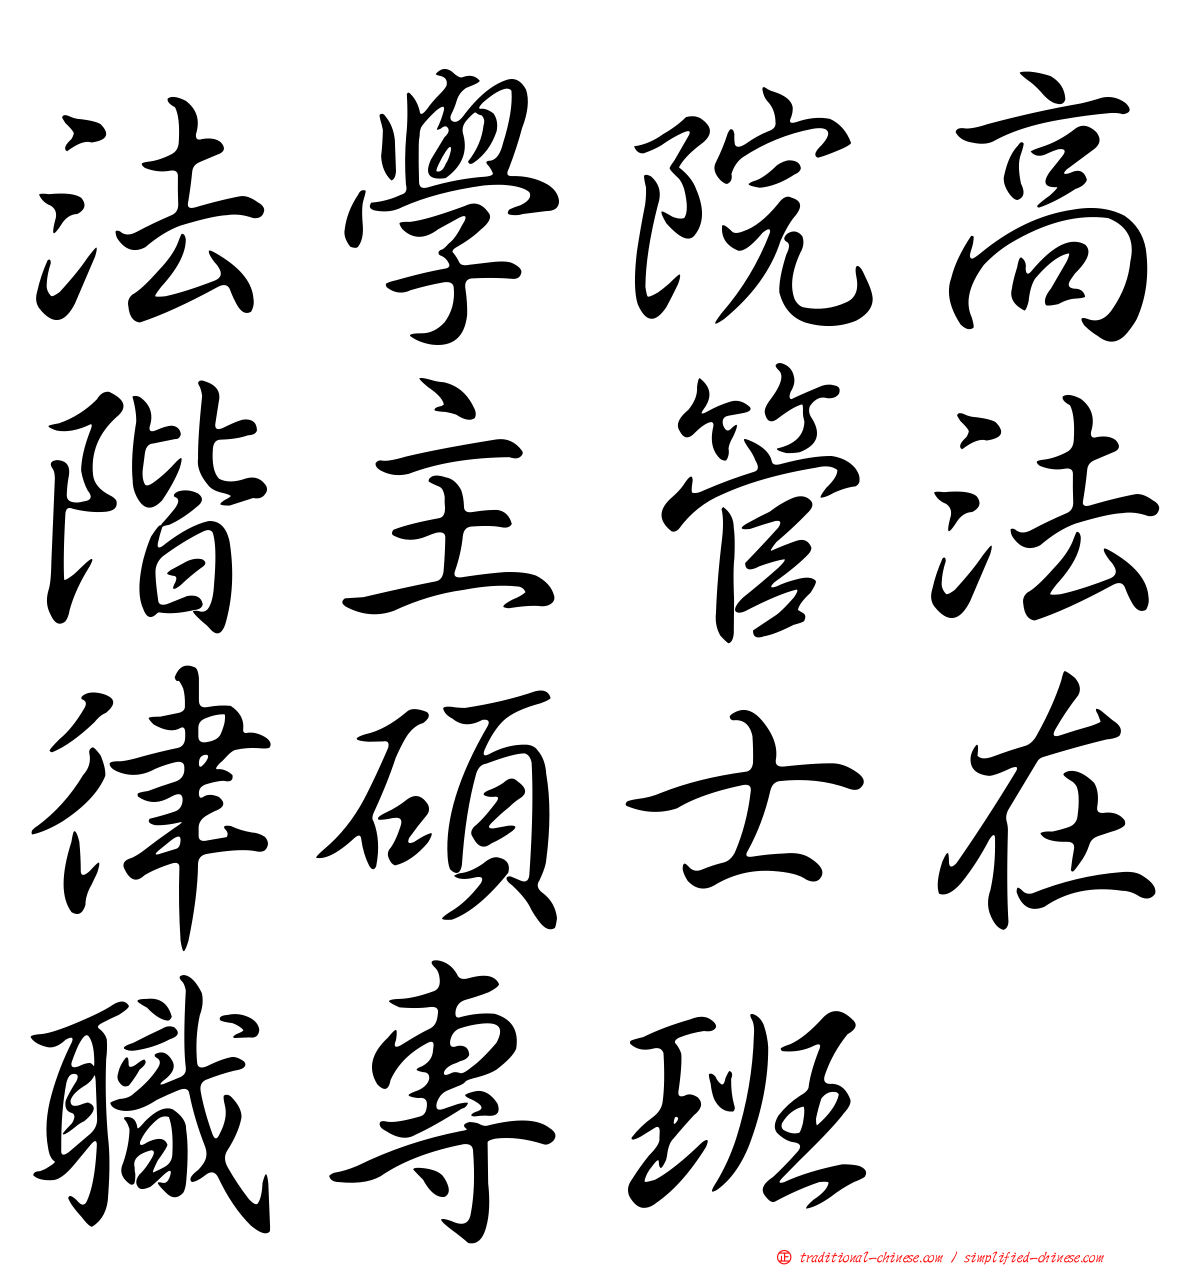 法學院高
階主管法
律碩士在
職專班
正 traditional-chinese.com / simplified-chinese.com